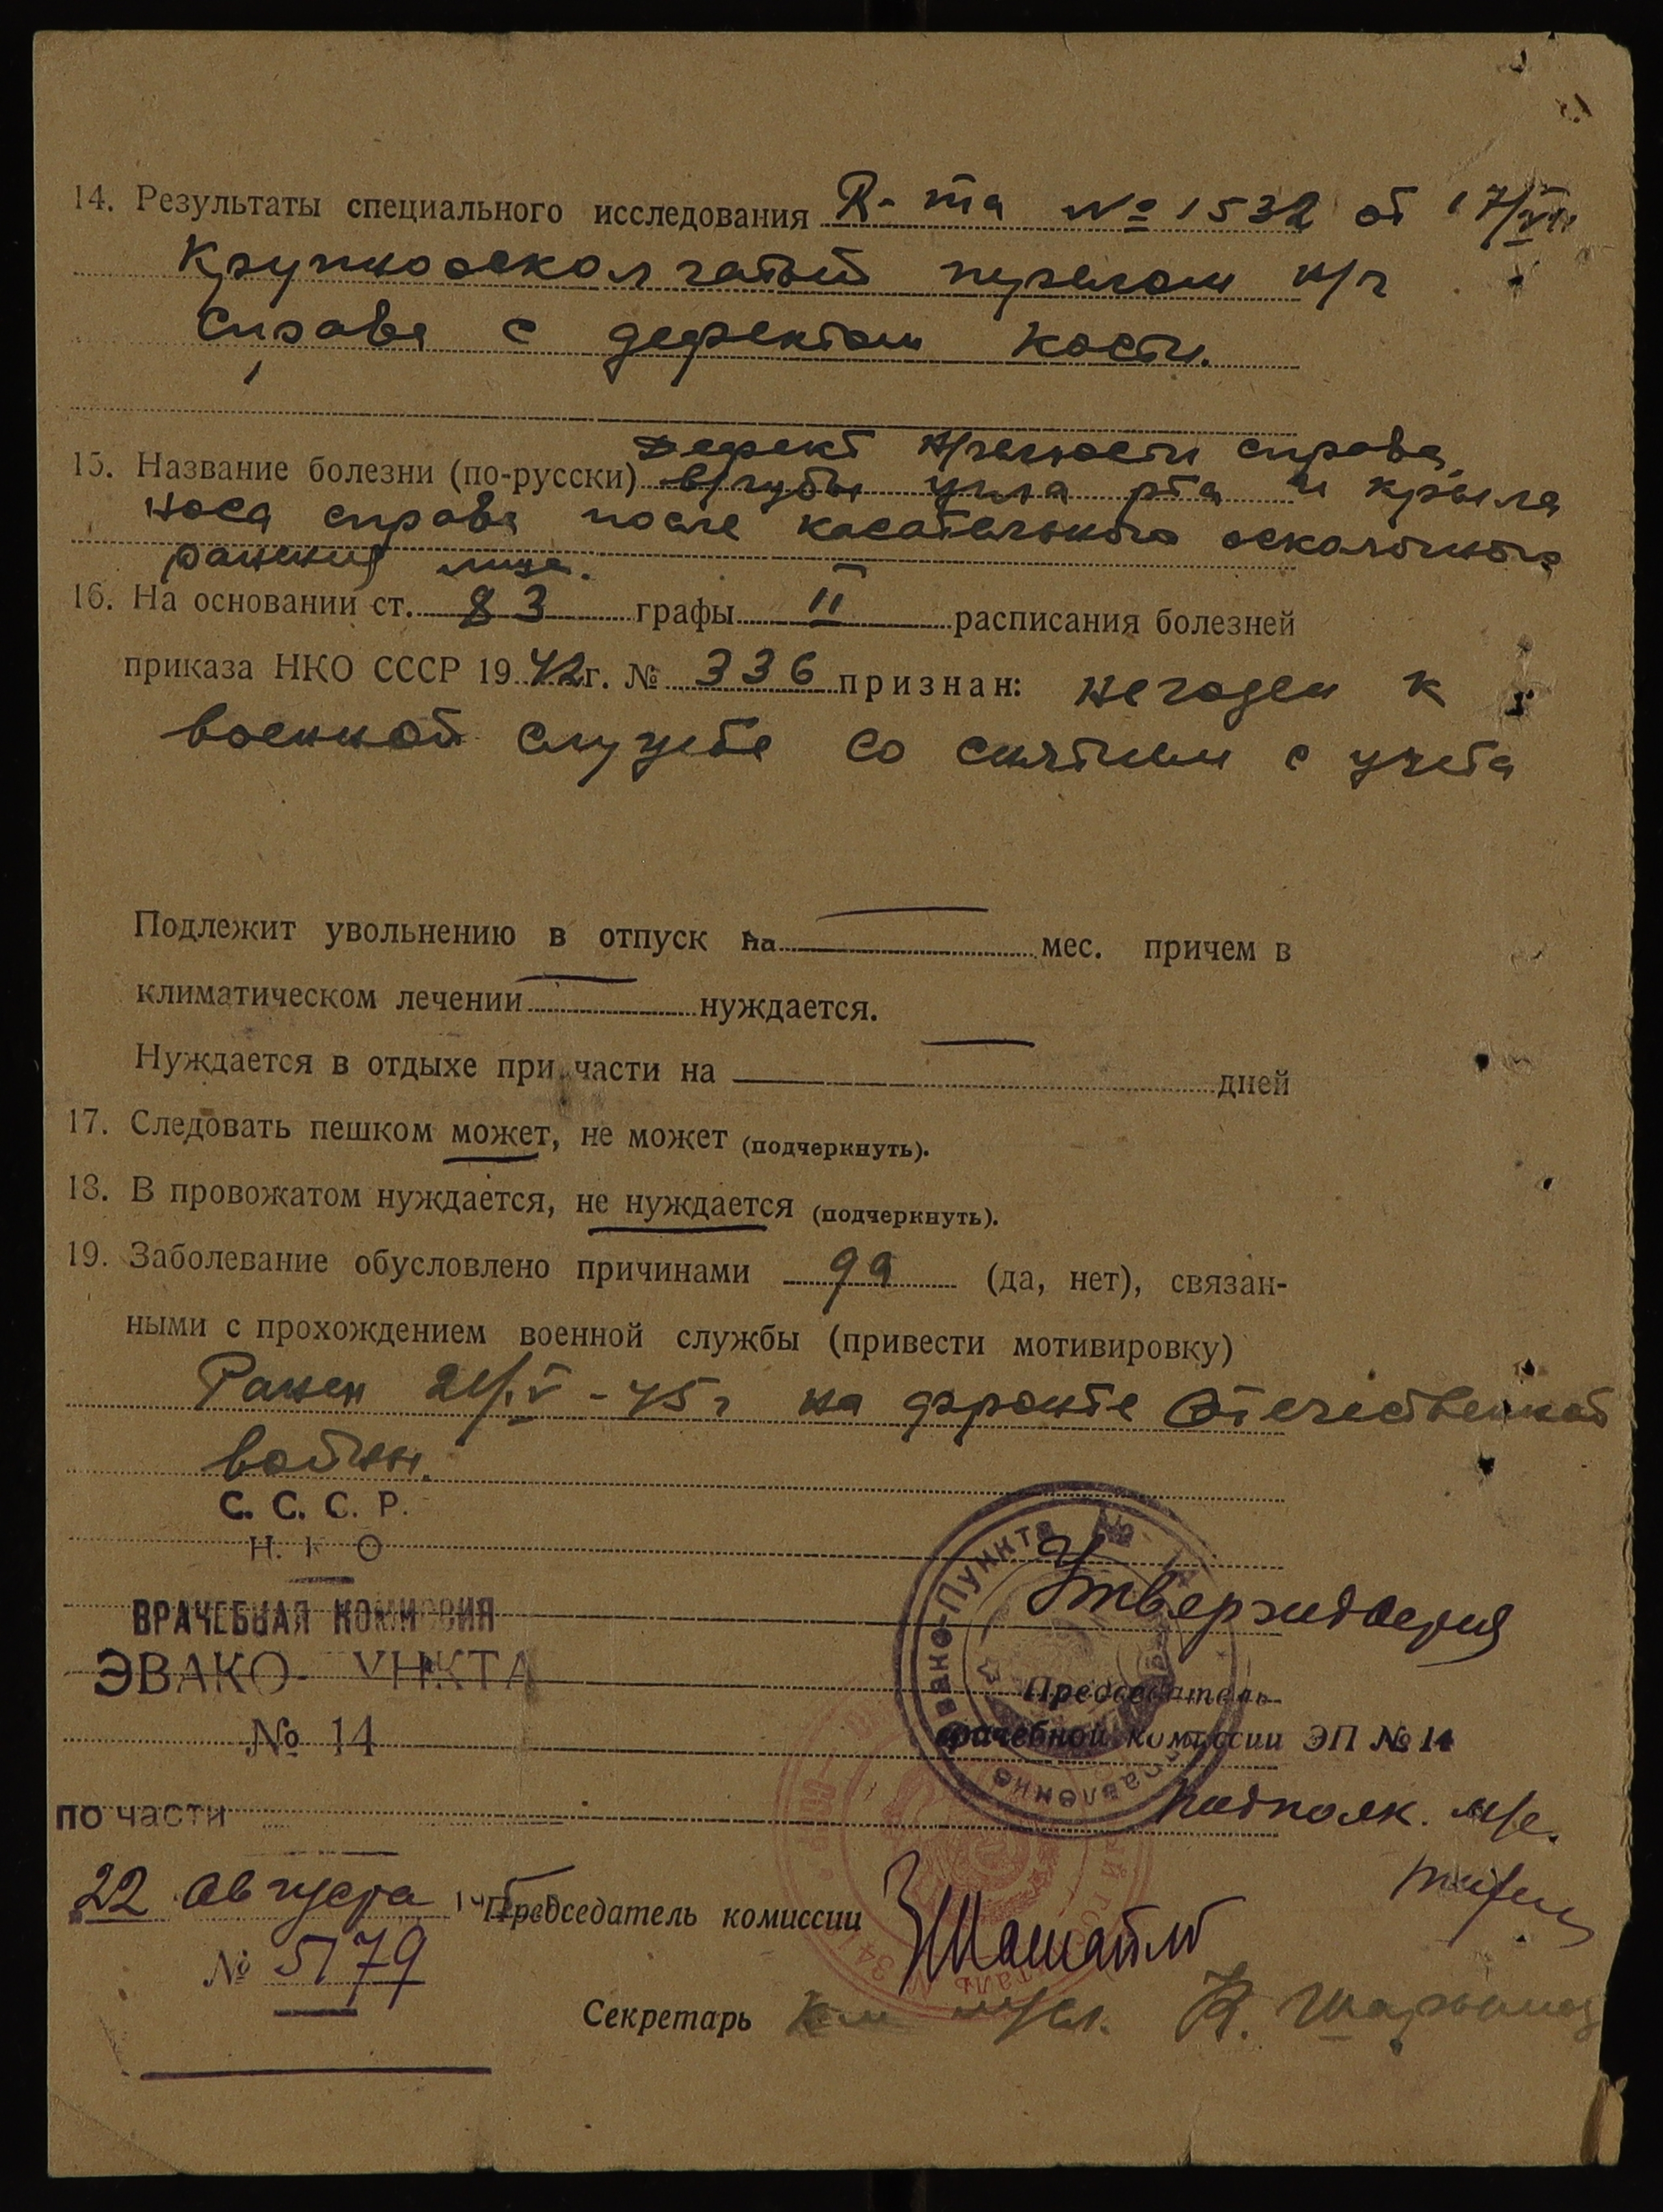 14. Результаты специального исследования R-ма № 1532 от 17/VIII
Крупнооскольчатый перелом н/ч
справа с дефектом кости.
15. Название болезни (по-русски) Дефект н/челюсти справа,
в/губы угла рта и крыла
носа справа после касательного осколочного
ранения лица.
16. На основании ст. 83 графы II расписания болезней
приказа НКО СССР 1942г. № 336 признан: не годен к
военной службе со снятием с учета
Подлежит увольнению в отпуск на мес. причем в
климатическом лечении нуждается.
Нуждается в отдыхе при части на дней
17. Следовать пешком может, не может (подчеркнуть).
18. В провожатом нуждается, не нуждается (подчеркнуть).
19. Заболевание обусловлено причинами да (да, нет), связан-
ными с прохождением военной службы (привести мотивировку)
Ранен 21/IV-45г на фронте Отечественной
войны.
С. С. С. Р.
Н. К О
ВРАЧЕБНАЯ КОМИССИЯ
ЭВАКО- УНКТА
№ 14
по части
22 Августа 1945
№ 5179
Эвако-Пункта №
Утверждаю
Председатель
врачебной комиссии ЭП № 14
подполк. м/с.
Председатель комиссии
Секретарь м/сл.